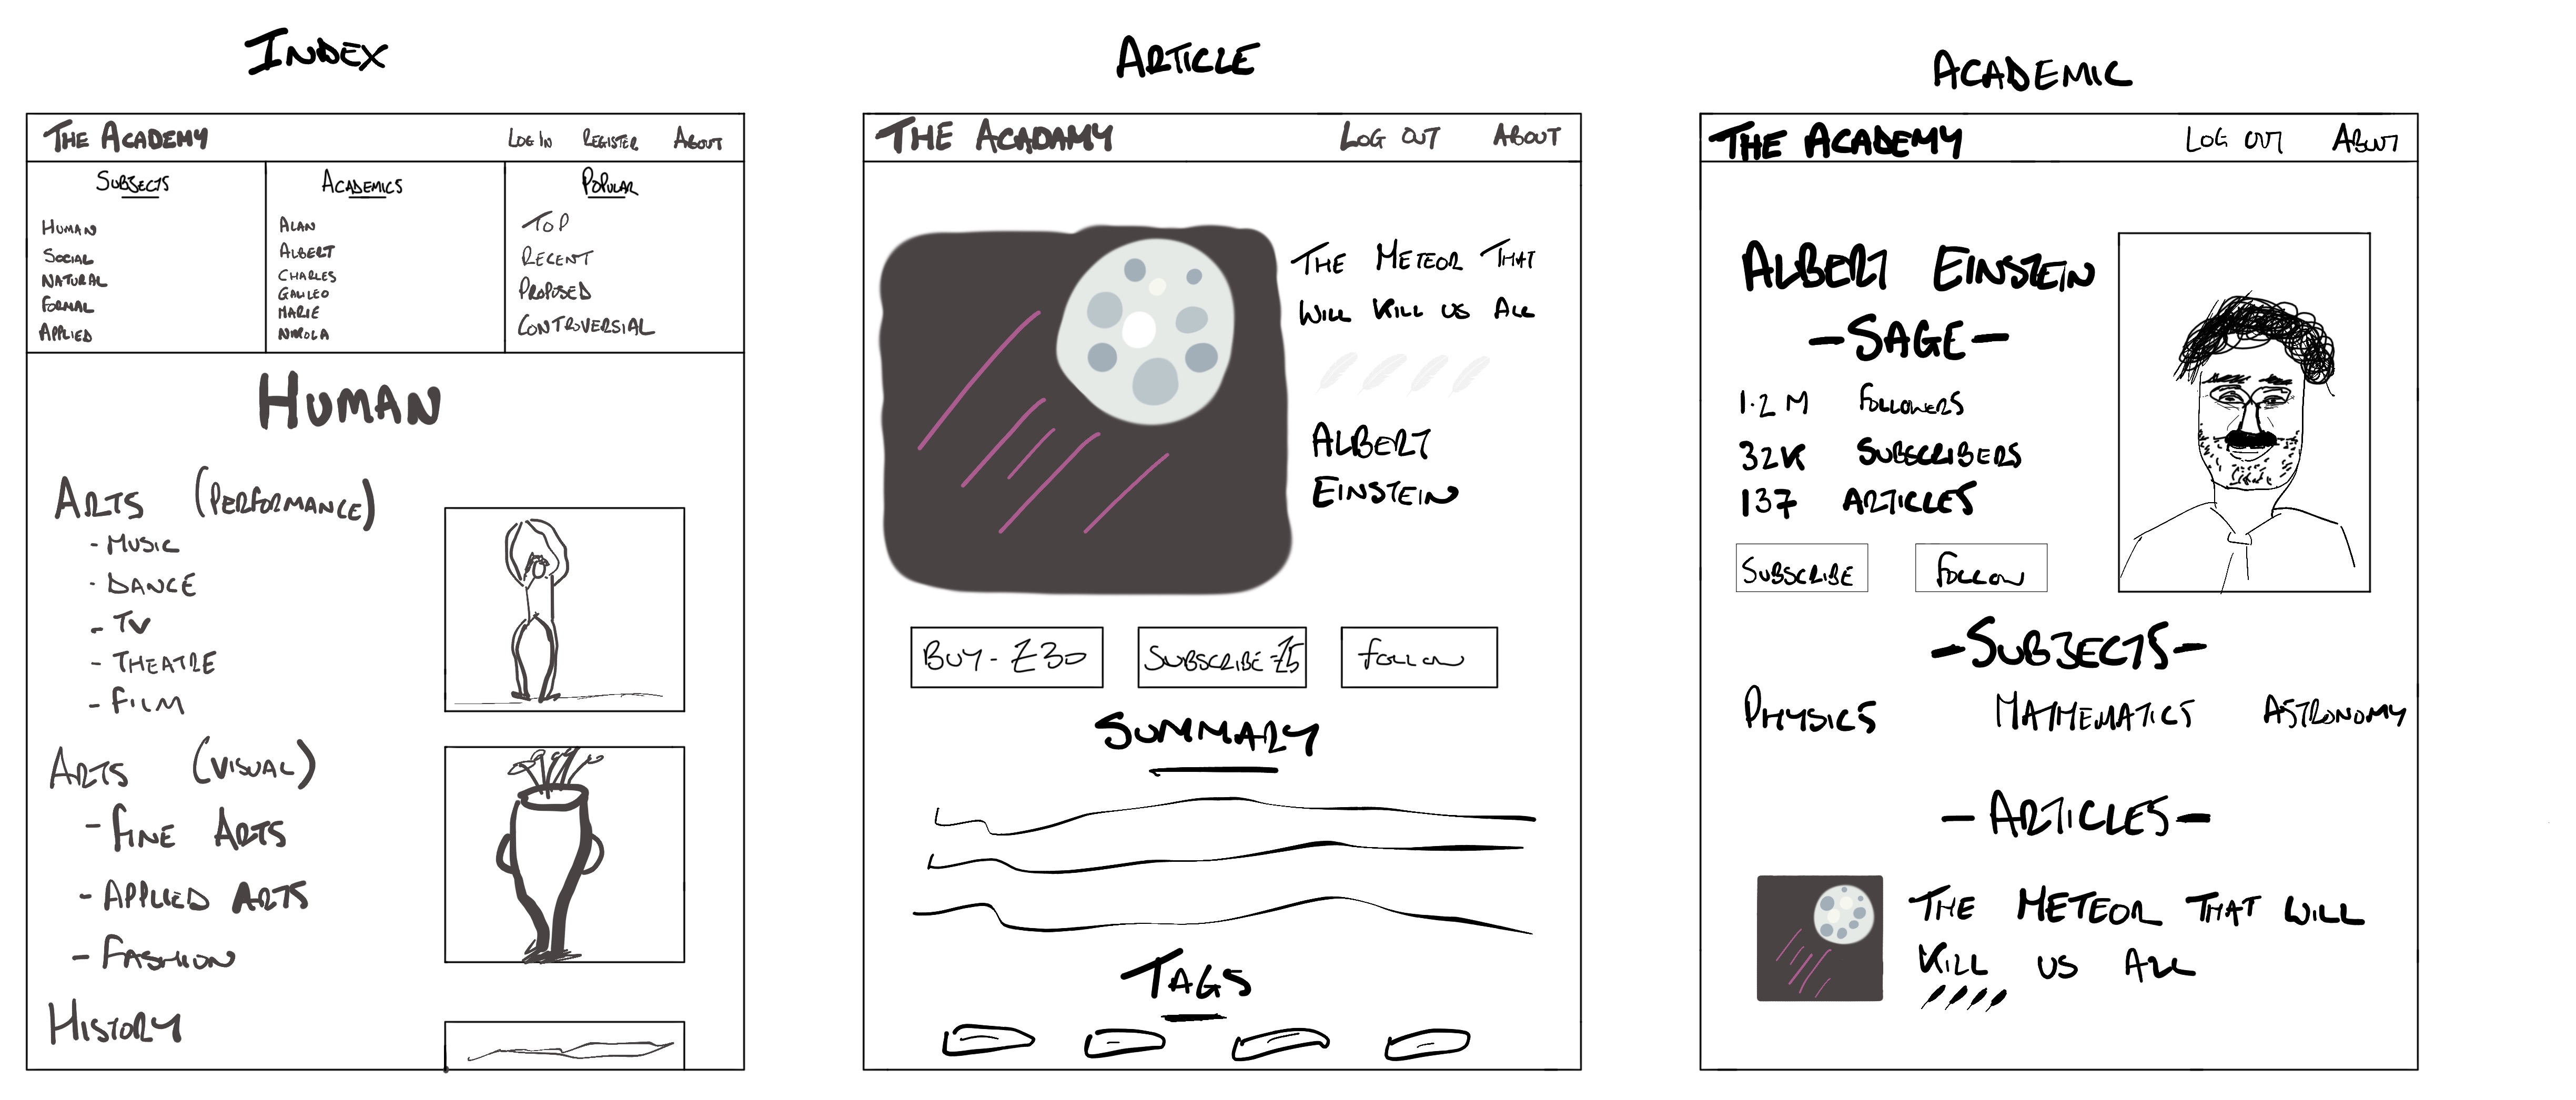 INDEX
THE ACADEMY
LOG IN
REGISTER
ABOUT
SUBJECTS
HUMAN
SOCIAL
NATURAL
FORMAL
APPLIED
ACADEMICS
ALAN
ALBERT
CHARLES
GALILEO
MARIE
NIKOLA
POPULAR
TOP
RECENT
PROPOSED
CONTROVERSIAL
HUMAN
ARTS (PERFORMANCE)
- MUSIC
- DANCE
- TV
- THEATRE
- FILM
ARTS (VISUAL)
- FINE ARTS
- APPLIED ARTS
- FASHION
HISTORY
ARTICLE
THE ACADAMY
LOG OUT
ABOUT
THE METEOR THAT
WILL KILL US ALL
ALBERT
EINSTEIN
BUY - £30
SUBSCRIBE - £5
FOLLOW
SUMMARY
TAGS
ACADEMIC
THE ACADEMY
LOG OUT
ABOUT
ALBERT EINSTEIN
- SAGE -
1.2 M FOLLOWERS
32K SUBSCRIBERS
137 ARTICLES
SUBSCRIBE
FOLLOW
- SUBJECTS -
PHYSICS
MATHEMATICS
ASTRONOMY
- ARTICLES -
THE METEOR THAT WILL
KILL US ALL